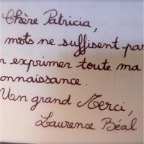 Chère Patricia,
mots ne suffisent pas
exprimer toute ma
connaissance.
Un grand Merci,
Laurence Béal